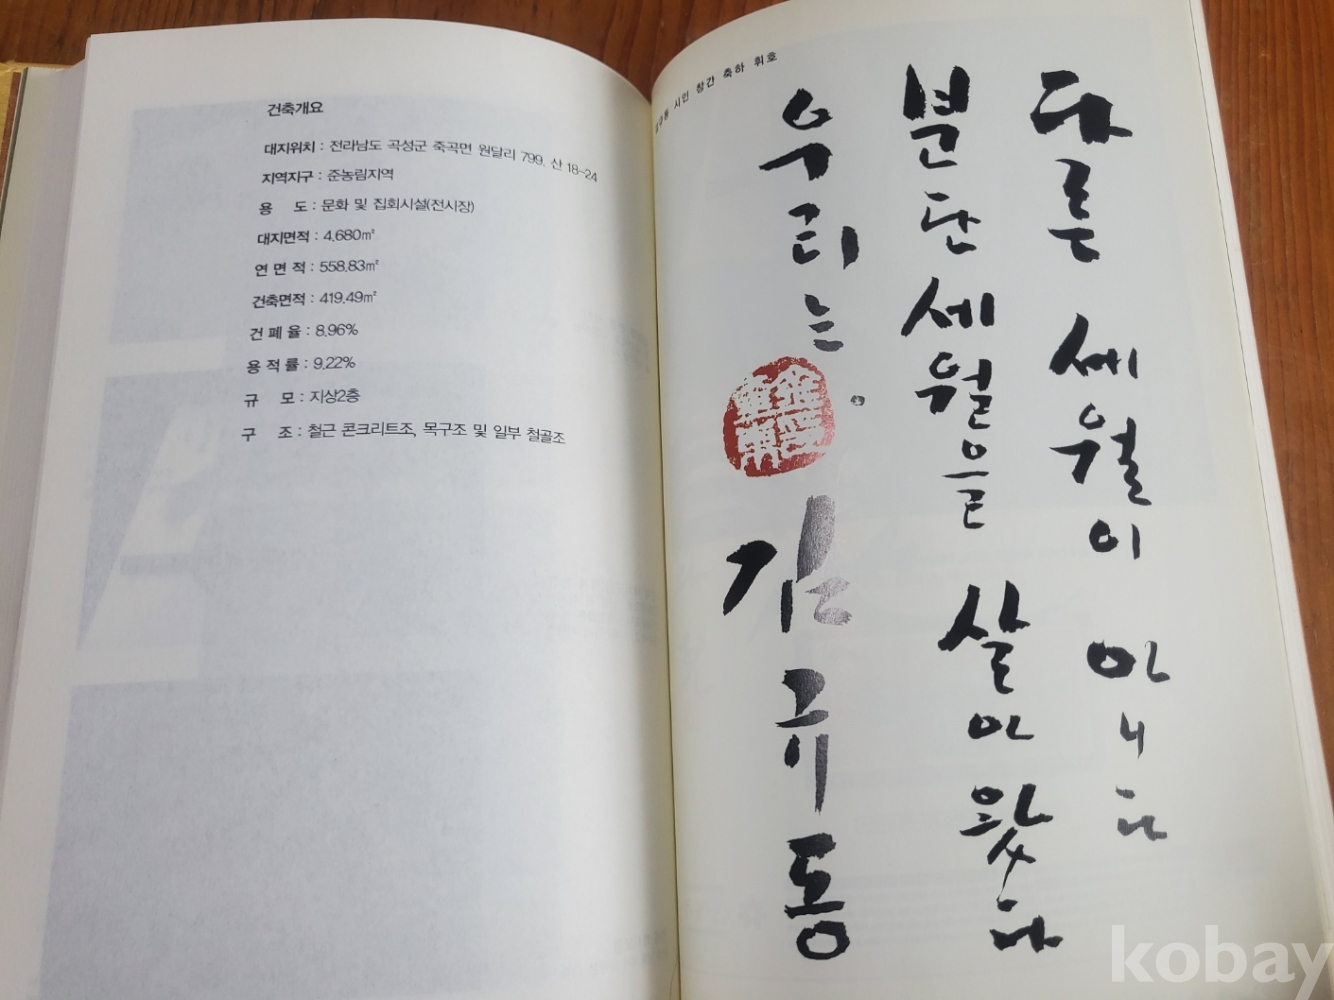 건축개요
대지위치 : 전라남도 곡성군 죽곡면 원달리 799, 산 18~24
지역지구 : 준농림지역
용 도 : 문화 및 집회시설(전시장)
대지면적 : 4.680㎡
연 면 적 : 558.83㎡
건축면적 : 419.49㎡
건 폐 율 : 8.96%
용 적 률 : 9.22%
규 모 : 지상2층
구 조 : 철근 콘크리트조, 목구조 및 일부 철골조
시인 창간 축하 휘호
다른 세월이 아니다
분단 세월을 살아왔다
우리는.
김규동
kobay